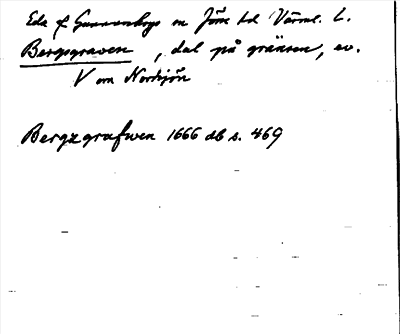 Eda sf Gunnarskogs sn Jösse hd Värml. L.
Bergsgraven, dal på gränsen, ev.
V om Norsjön
Bergzgrafwen 1666 db s. 469